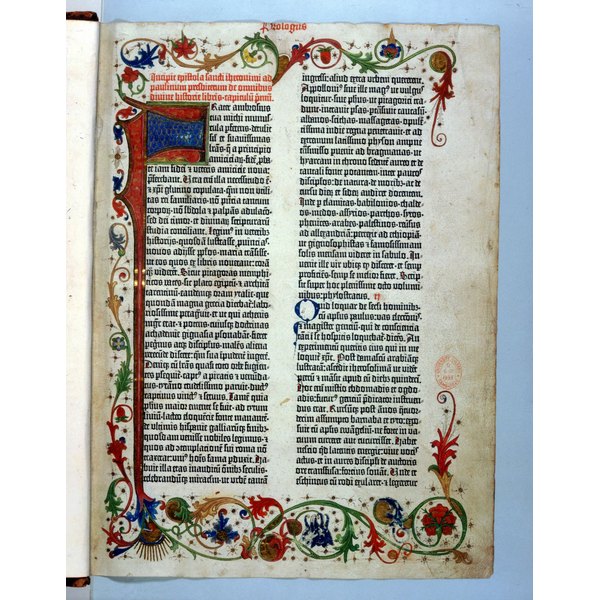 Prologus
Incipit epistola sancti iheronimi ad
paulinum presbiterum de omnibus
divine historie libris·capitulū pmū·
Frater ambrosius
tua michi munus-
cula pferens·detulit
sił et suavissimas
lrās·q̄ a principio
amiciciar̄·fidē pba-
te iam fidei et veteris amicicie nova:
pferebant. Vera eni illa necessitudo ē·
et xpi glutino copulata·qm non utili-
tas rei familiaris·nō pntia tantum
corporū·nō sbdola et palpās adulacō·
sed dei timor·et divinar̄ scripturarum
studia conciliant. Legimus in veterib
historijs·quosdā lustrasse puincias·
novos adijsse pplos·maria trāsisse·
ut eos quos ex libris noverant: coram
qz viderēt. Sicut pitagoras memphi-
ticos vates·sic plato egiptū·et architā
tarentinū·eandemqz oram ytalie·que
quondā magna grecia dicebat̄: labo-
riosissime peragravit·et ut qui athenis
mgr erat·et potens·cuiusqz doctrinas
achademie gignasia psonabāt·fieret
pegrinus atqz discipulus·malēs aliena
verecunde discere: qm sua īpudēter ingerē.
Deniqz cū lrās quasi toto orbe fugien-
tes psequit̄·capt9 a piratis et venūda-
tus·tyrāno crudelissimo paruit·duct9
captivus vinct9 et servus. Tamē quia
phus·maior emente se fuit·ad tytum
liviū·lacteo eloquentie fonte manantē·
de ultimis hispanie galliarūqz finib9·
quosdam venisse nobiles legimus·et
quos ad contemplacionē sui roma nō
traxerat: uni9 hoīs fama pduxit. Ha-
buit illa etas inauditū oīnib9 seculis·
celebrandūqz miraculū·ut urbē tantā
ingressi: aliud extra urbem quererent.
Apolloni9 sive ille mag9 ut vulgus
loquitur·sive phus·ut pitagorici tra-
dunt·intravit psas·ptrāsivit caucasū·
albanos·scithas·massagetas·opulē-
tissima indie regna penetravit·et ad
extremum latissimo physon amne
trāsmisso puenit ad bragmanas·ut
hyarcam in throno sedentē aureo et de
tantali fonte potantem·inter paucos
discipulos·de natura·de moribz ac de
cursu dierū et sidera audiret docentem.
Inde p elamitas·babilonios·chalde-
os·medos·assyrios·parthos·syros·
phenices·arabes·palestinos·reversus
ad allexandriā: perrexit ad ethiopiā·
ut gignosophistas et famosissimam
solis mensam videret in sabulo. Inve-
nit ille vir ubiqz qd disceret·et semp
proficiēs·semp se melior fieret. Scrip-
sit super hoc plenissime octo volumi-
nibus: phylostratus. II
Quid loquar de seculi hominib9·
cū apłus paulus·vas electōnis·
et magister genciū·qui de consciencia
tāti i se hospitis loquebat̄·dicens. An
experimentū queritis eius qui in me
loquit̄ xpc. Post damascū arabiāqz
lustratā: ascēdit iherosolimā ut videt
petrū et māsit apud eū dieb9 quindeci.
Hoc eni misterio ebdomadis et ogdo-
adis: futur9 genciū predicator instru-
endus erat. Rursūqz post ānos qtuor-
decim assumpto barnaba et tyto: expo-
suit cū aplis euangeliū·ne forte in va-
cuum curreret aut cucurrisset. Habet
nescio qd latentis energie: vive vocis
actus·et in aures discipli de auctoris
ore transfusa: forcius sonat. Unde et
eschines cū rodi exularet·et legeretur